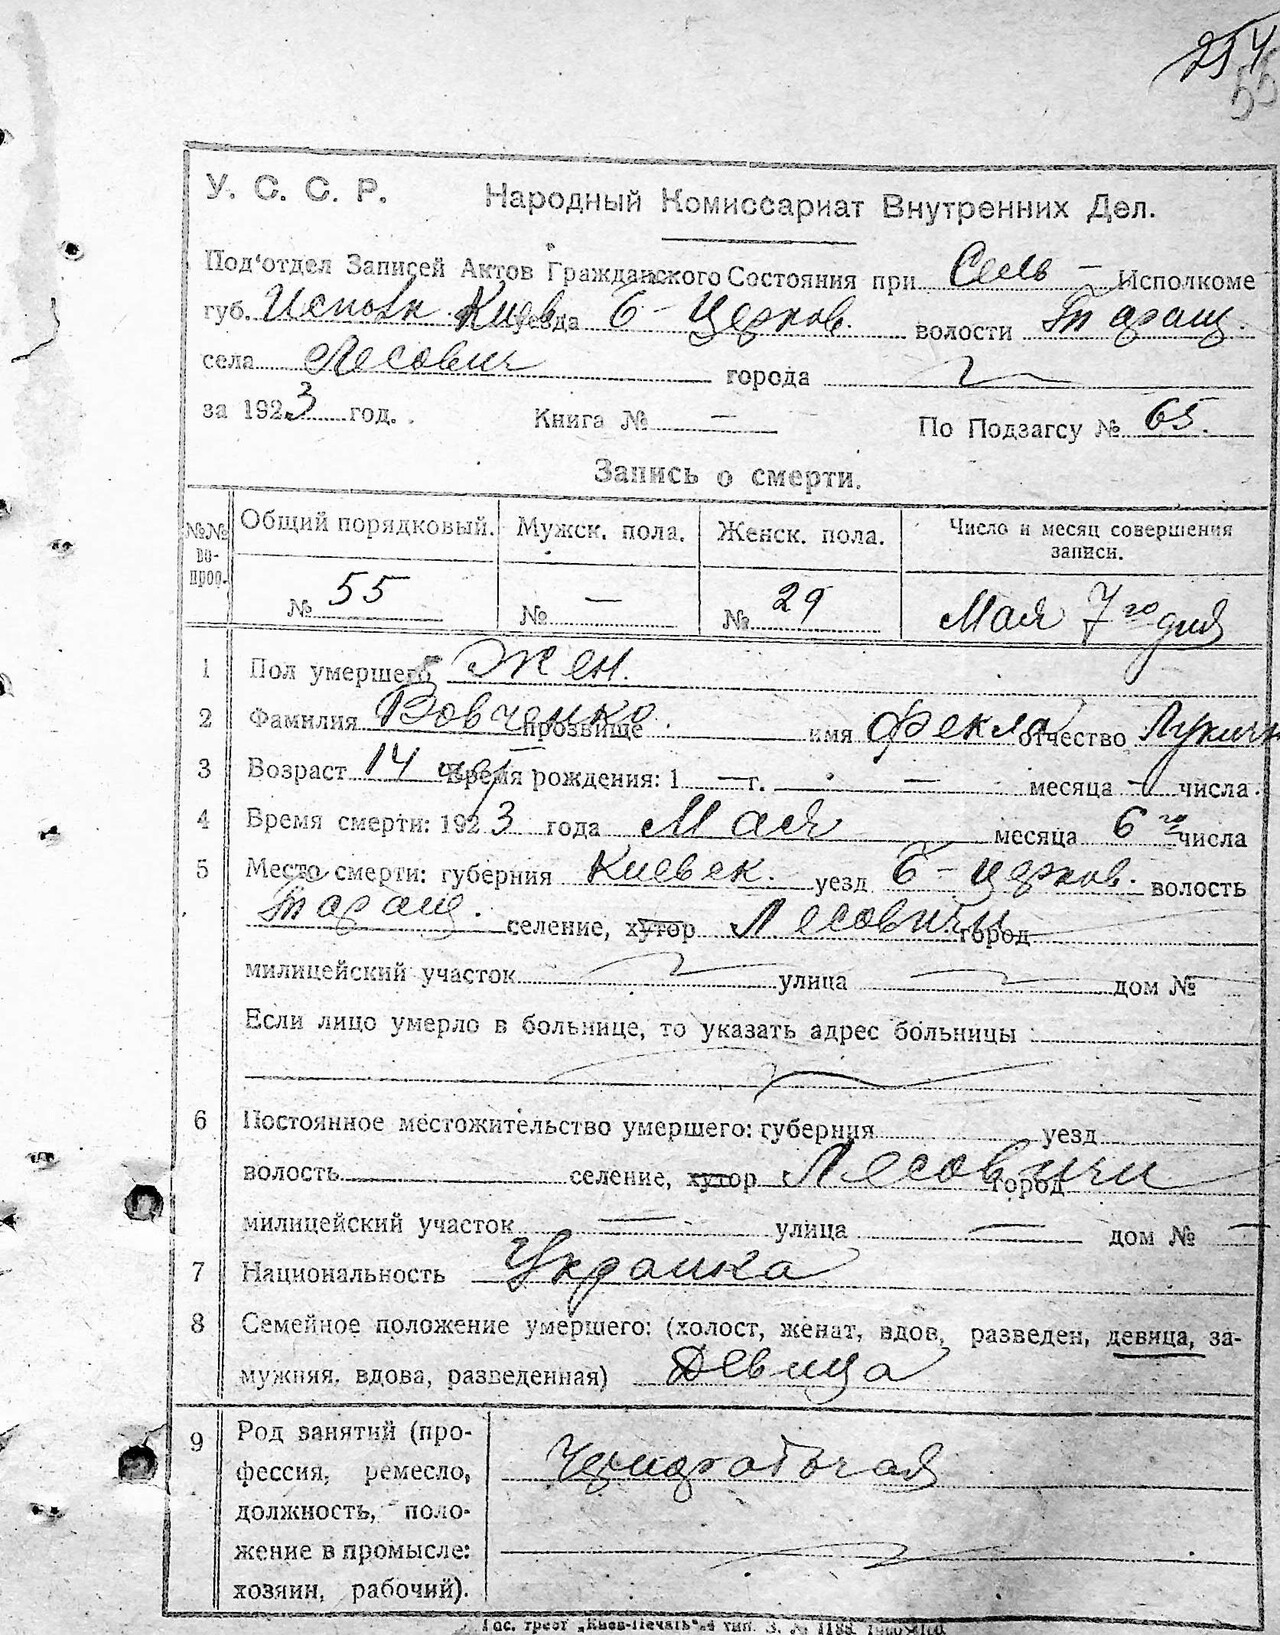 254
55
У. С. С. Р. Народный Комиссариат Внутренних Дел.
Под'отдел Записей Актов Гражданского Состояния при Сель - Исполкоме
губ. Исполк Киев уезда Б - Церков. волости Таращ.
села Лесович города
за 1923 год. Книга № — По Подзагсу № 65.
Запись о смерти.
№№ вопрос. Общий порядковый. Мужск. пола. Женск. пола. Число и месяц совершения записи.
№ 55 № — № 29 Мая 7го дня
1 Пол умершего Жен.
2 Фамилия Вовченко прозвище имя Фекла отчество Лукичн
3 Возраст 14 Время рождения: 1 — г. — месяца — числа.
4 Время смерти: 1923 года Мая месяца 6го числа
5 Место смерти: губерния Киевск. уезд Б - Церков. волость
Таращ. селение, хутор Лесовичи город
милицейский участок улица дом №
Если лицо умерло в больнице, то указать адрес больницы
6 Постоянное местожительство умершего: губерния уезд
волость селение, хутор Лесовичи город
милицейский участок — улица — дом № —
7 Национальность Украинка
8 Семейное положение умершего: (холост, женат, вдов, разведен, девица, за-
мужняя, вдова, разведенная) Девица
9 Род занятий (про-
фессия, ремесло,
должность, поло-
жение в промысле:
хозяин, рабочий).
Гос. трест „Киев-Печать" 4 тип. З. № 1188